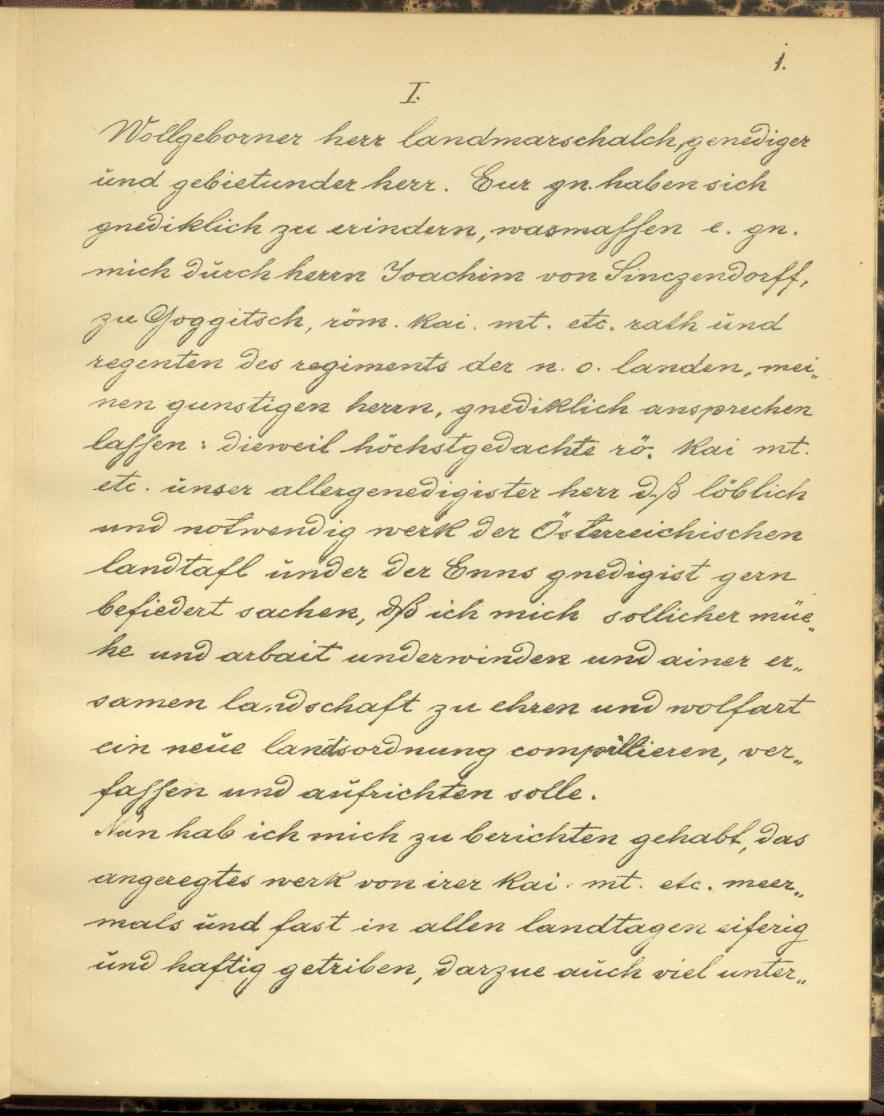 1.
I.
Wollgeborner herr landmarschalch, genediger
und gebietunder herr. Eur gn. haben sich
gnediklich zu erindern, wasmassen e. gn.
mich durch herrn Joachim von Sinczendorff,
zu Goggitsch, röm. kai. mt. etc. rath und
regenten des regiments der n. o. landen, mei„
nen gunstigen herrn, gnediklich ansprechen
lassen: dieweil höchstgedachte rö. kai mt.
etc. unser allergenedigister herr dß löblich
und notwendig werk der Österreichischen
landtafl under der Enns gnedigist gern
befiedert sachen, dß ich mich sollicher müe„
he und arbait underwinden und ainer er„
samen landschaft zu ehren und wolfart
ein neue landsordnung compillieren, ver„
fassen und aufrichten solle.
Nun hab ich mich zu berichten gehabt, das
angeregtes werk von irer kai. mt. etc. meer„
mals und fast in allen landtagen eiferig
und haftig getriben, darzue auch viel unter„